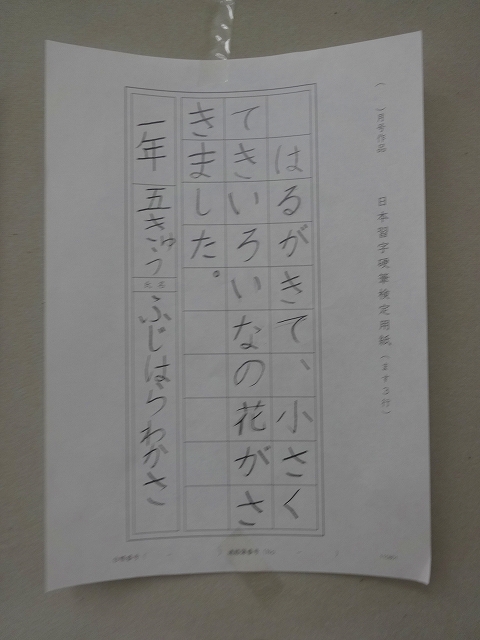 ( )月号作品 日本習字硬筆検定用紙(ます3行)
はるがきて、小さく
てきいろいなの花がさ
きました。
一年 五きゅう 氏名 ふじはらわかさ